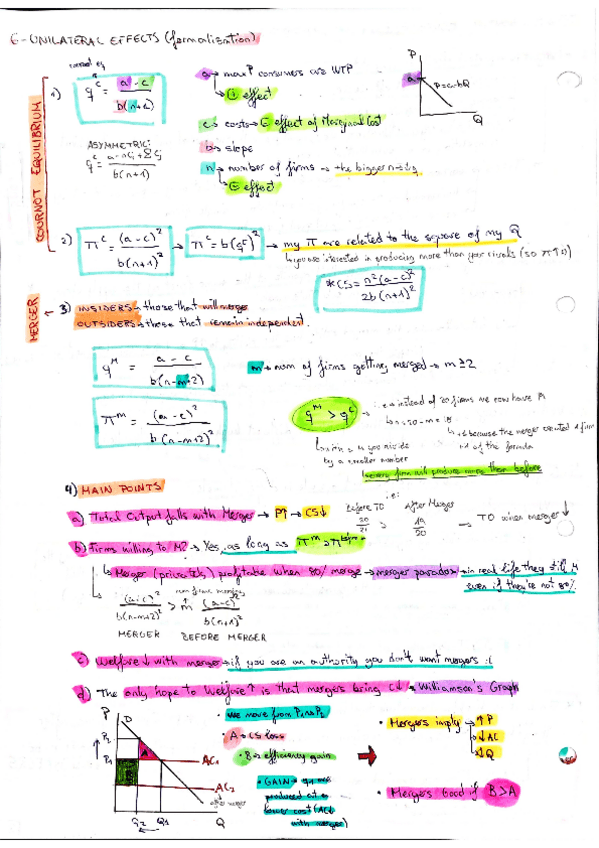 6- UNILATERAL EFFECTS (formalization)
COURNOT EQUILIBRIUM
1) q^c = a - c / b(n+1)
ASYMMETRIC:
a → max P consumers are WTP
effect
c → costs → effect of Marginal Cost
b → slope
n → number of firms → the bigger n →
effect
P
a
P=a-bQ
Q
2) π^c = (a-c)² / b(n+1)² → π^c = b(q^c)² → my π are related to the square of my Q
interested in producing more than your rivals (so π↑)
*CS = n²(a-c)² / 2b(n+1)²
MERGER
3) INSIDERS → those that will merge
OUTSIDERS → those that remain independent.
q^M = a - c / b(n-m+2)
m → num of firms getting merged → m ≥ 2
π^m = (a-c)² / b(n-m+2)²
q^M > q^c → i.e → instead of 20 firms we now have
+1 because the merger created a firm
+1 of the formula
you divide
by a smaller number
every firm will produce more than before
4) MAIN POINTS
a) Total Output falls with Merger → P↑ → CS↓
i.e:
Before TO 20/21 > After Merger 19/20 → TO when merger ↓
b) Firms willing to M? → Yes, as long as π^m > π^before
↳ Merger (privately) profitable when 80% merge → merger paradox → in real life they still M
even if they're not 80%
(a-c)² / b(n-m+2)² > m (a-c)² / b(n+1)²
num firms merging
MERGER BEFORE MERGER
c) Welfare ↓ with merger → if you are an authority you don't want mergers :(
d) The only hope to Welfare↑ is that mergers bring C↓ → Williamson's Graph
P
D
P2
P1
A
B
AC1
AC2
after merger
Q2 Q1 Q
• We move from P1 → P2
• A → CS loss
• B → efficiency gain
• GAIN → q are
produced at a
lower cost (AC↓
with merger)
• Mergers imply → ↑P
↓AC
↓Q
• Mergers Good if B>A